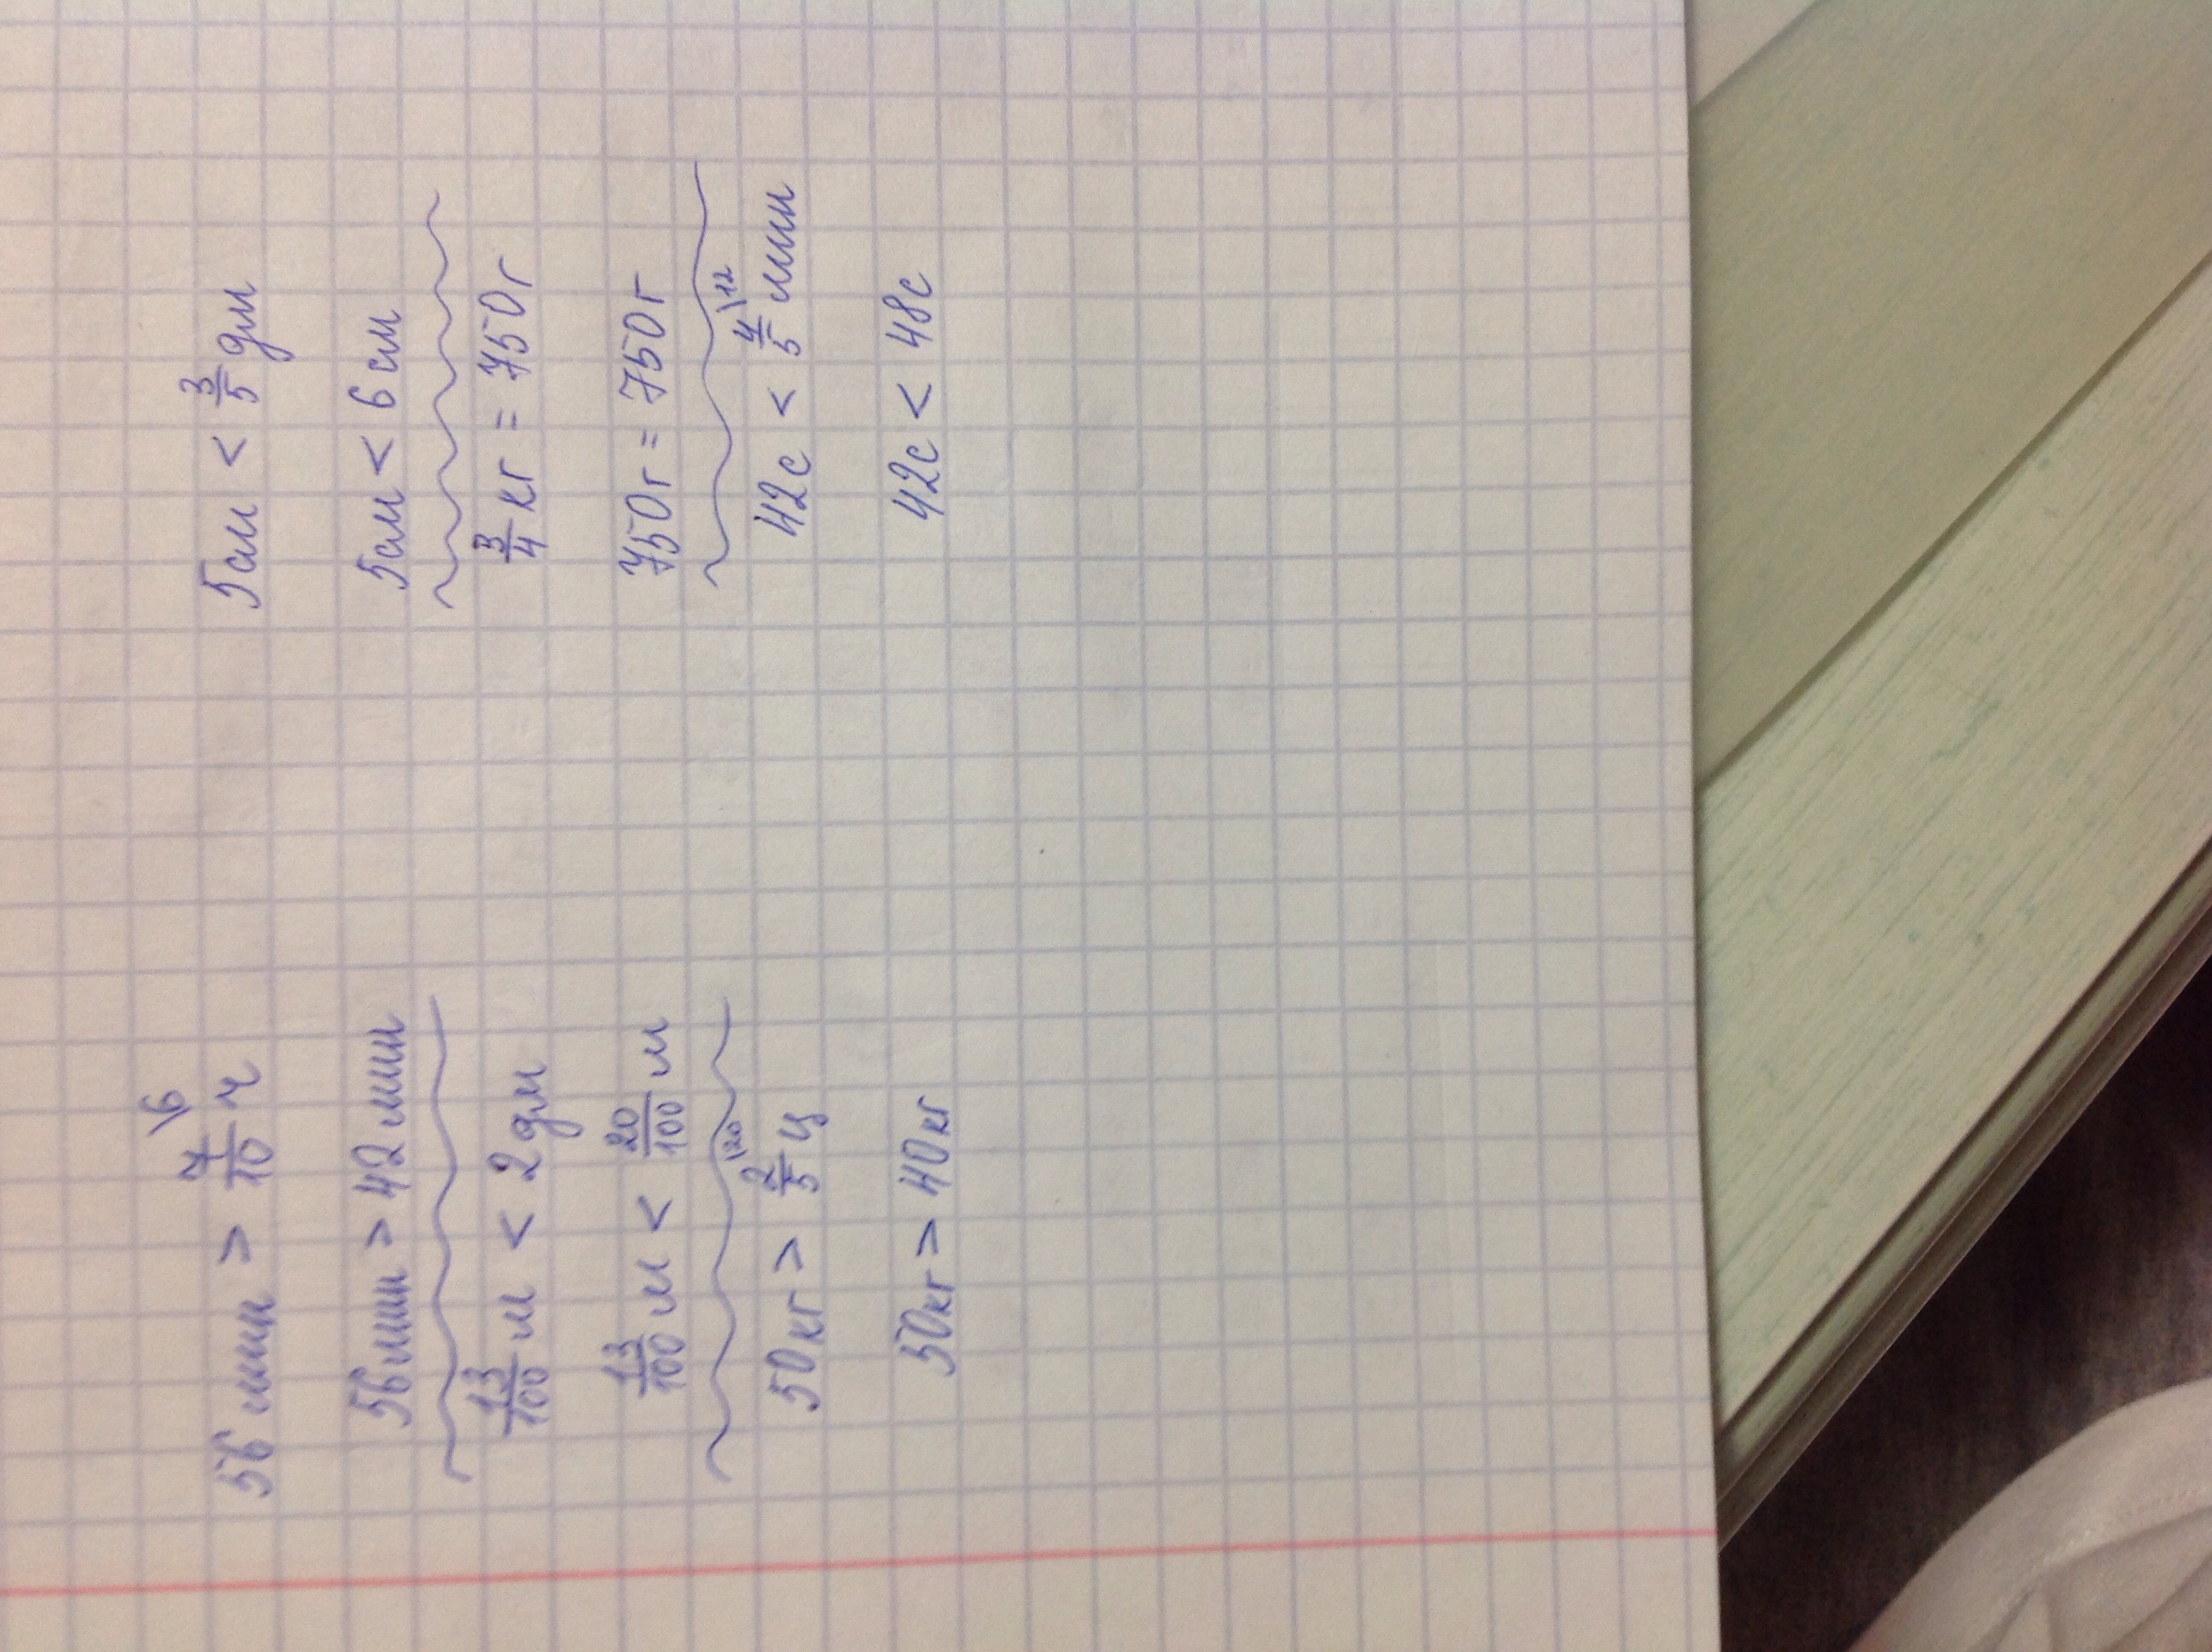 56 мин > 7/10 \6 ч
56 мин > 42 мин
13/100 м < 2 дм
13/100 м < 20/100 м
50 кг > 2/5 \20 ц
50 кг > 40 кг
5 см < 3/5 дм
5 см < 6 см
3/4 кг = 750 г
750 г = 750 г
42 с < 4/5 \12 мин
42 с < 48 с